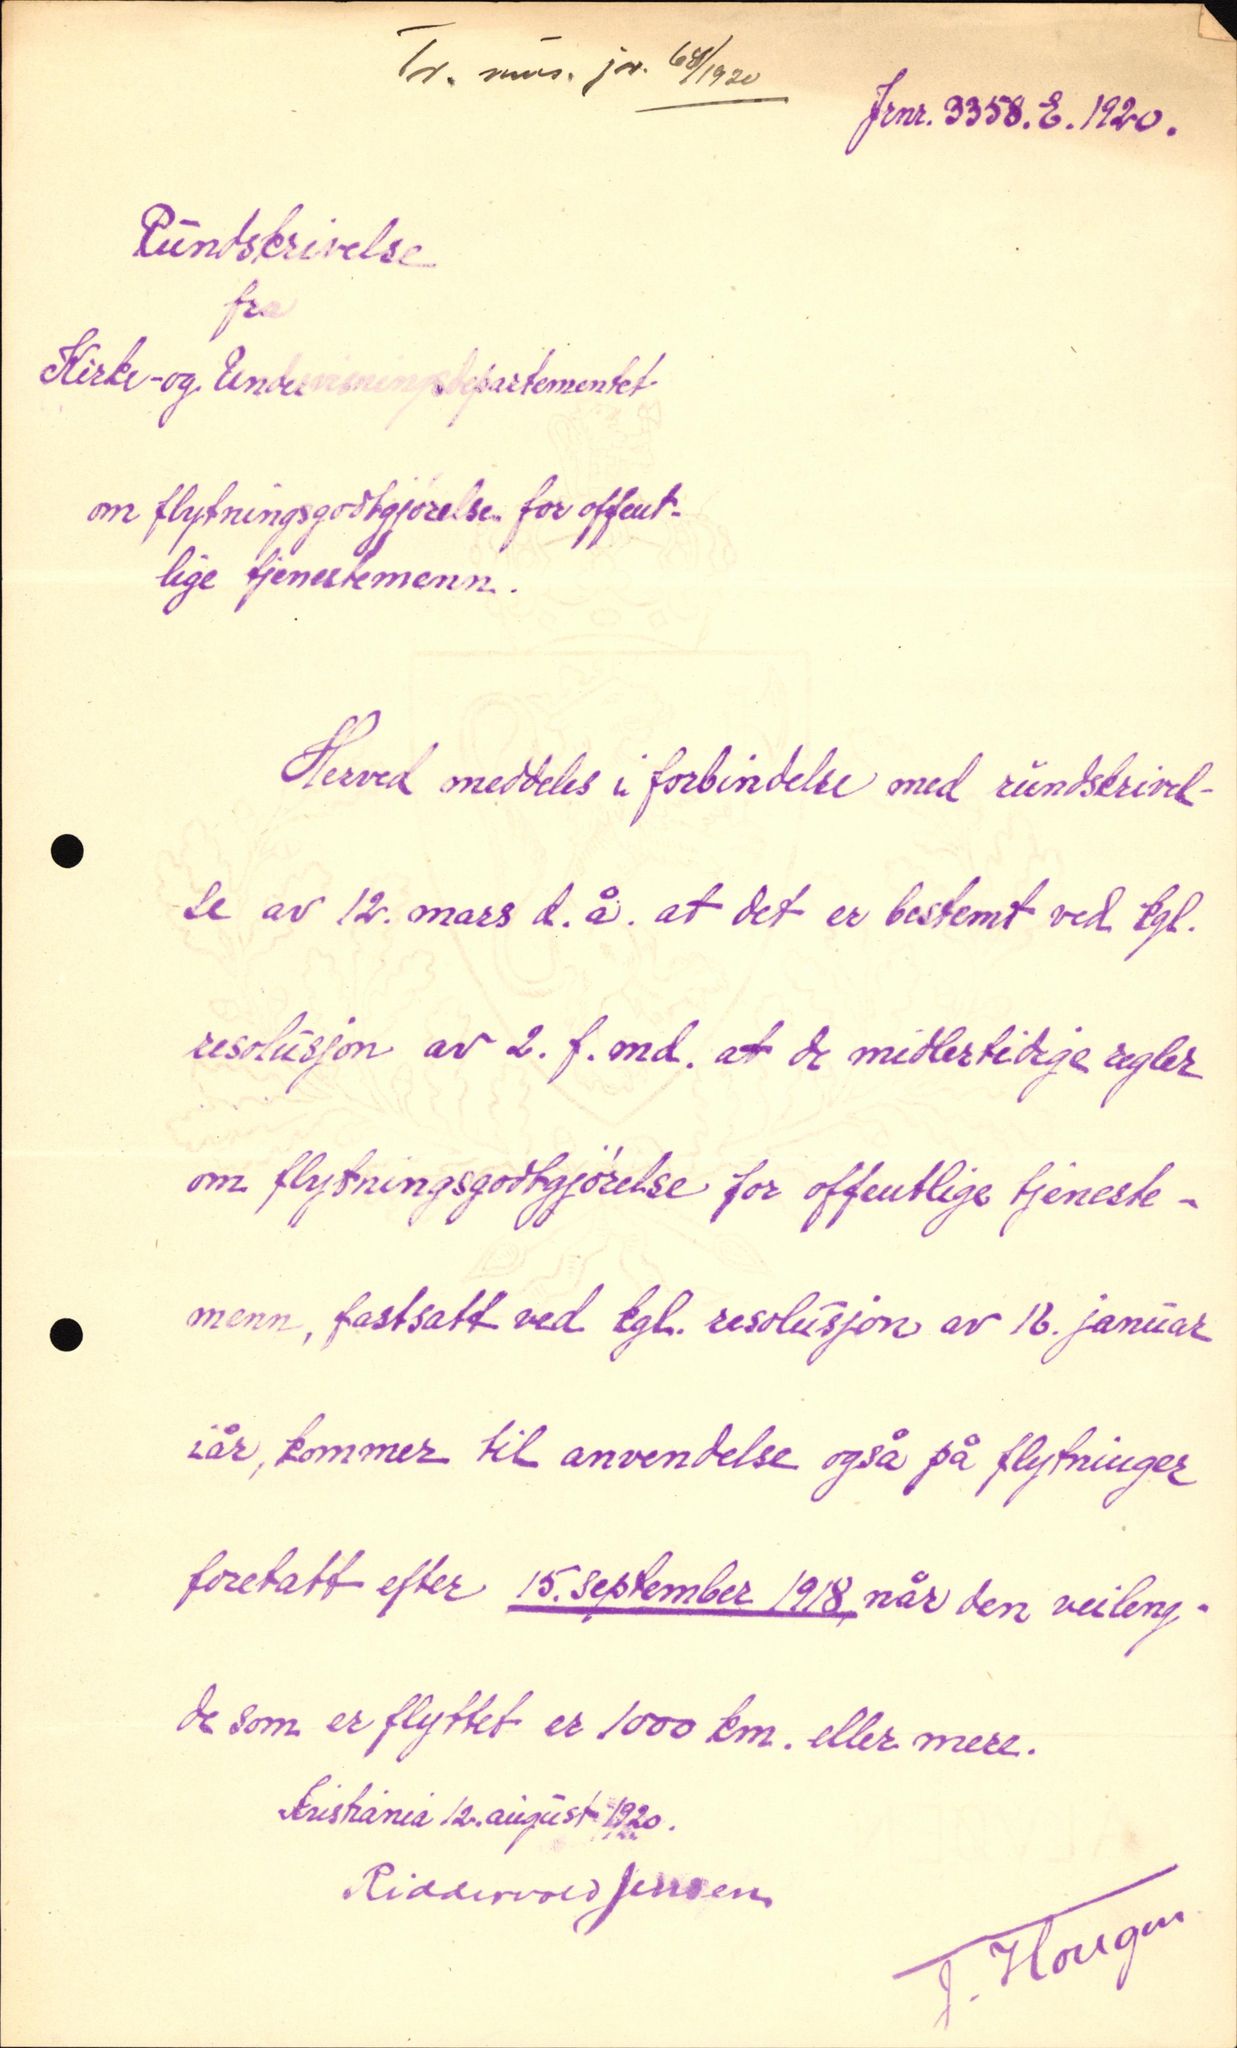 Tr. mus. jr. 68/1920
Jrnr. 3358. E. 1920.
Rundskrivelse
fra
Kirke- og Undervisningsdepartementet
om flytningsgodtgjörelse for offent-
lige tjenestemenn.
Herved meddeles i forbindelse med rundskrivel-
se av 12. mars d. å. at det er bestemt ved kgl.
resolusjon av 2. f. md. at de midlertidige regler
om flytningsgodtgjörelse for offentlige tjeneste-
menn, fastsatt ved kgl. resolusjon av 16. januar
iår, kommer til anvendelse også på flytninger
foretatt efter 15. september 1918, når den veileng-
de som er flyttet er 1000 km. eller mere.
Kristiania 12. august 1920.
Riddervold Jensen
J. Hougen